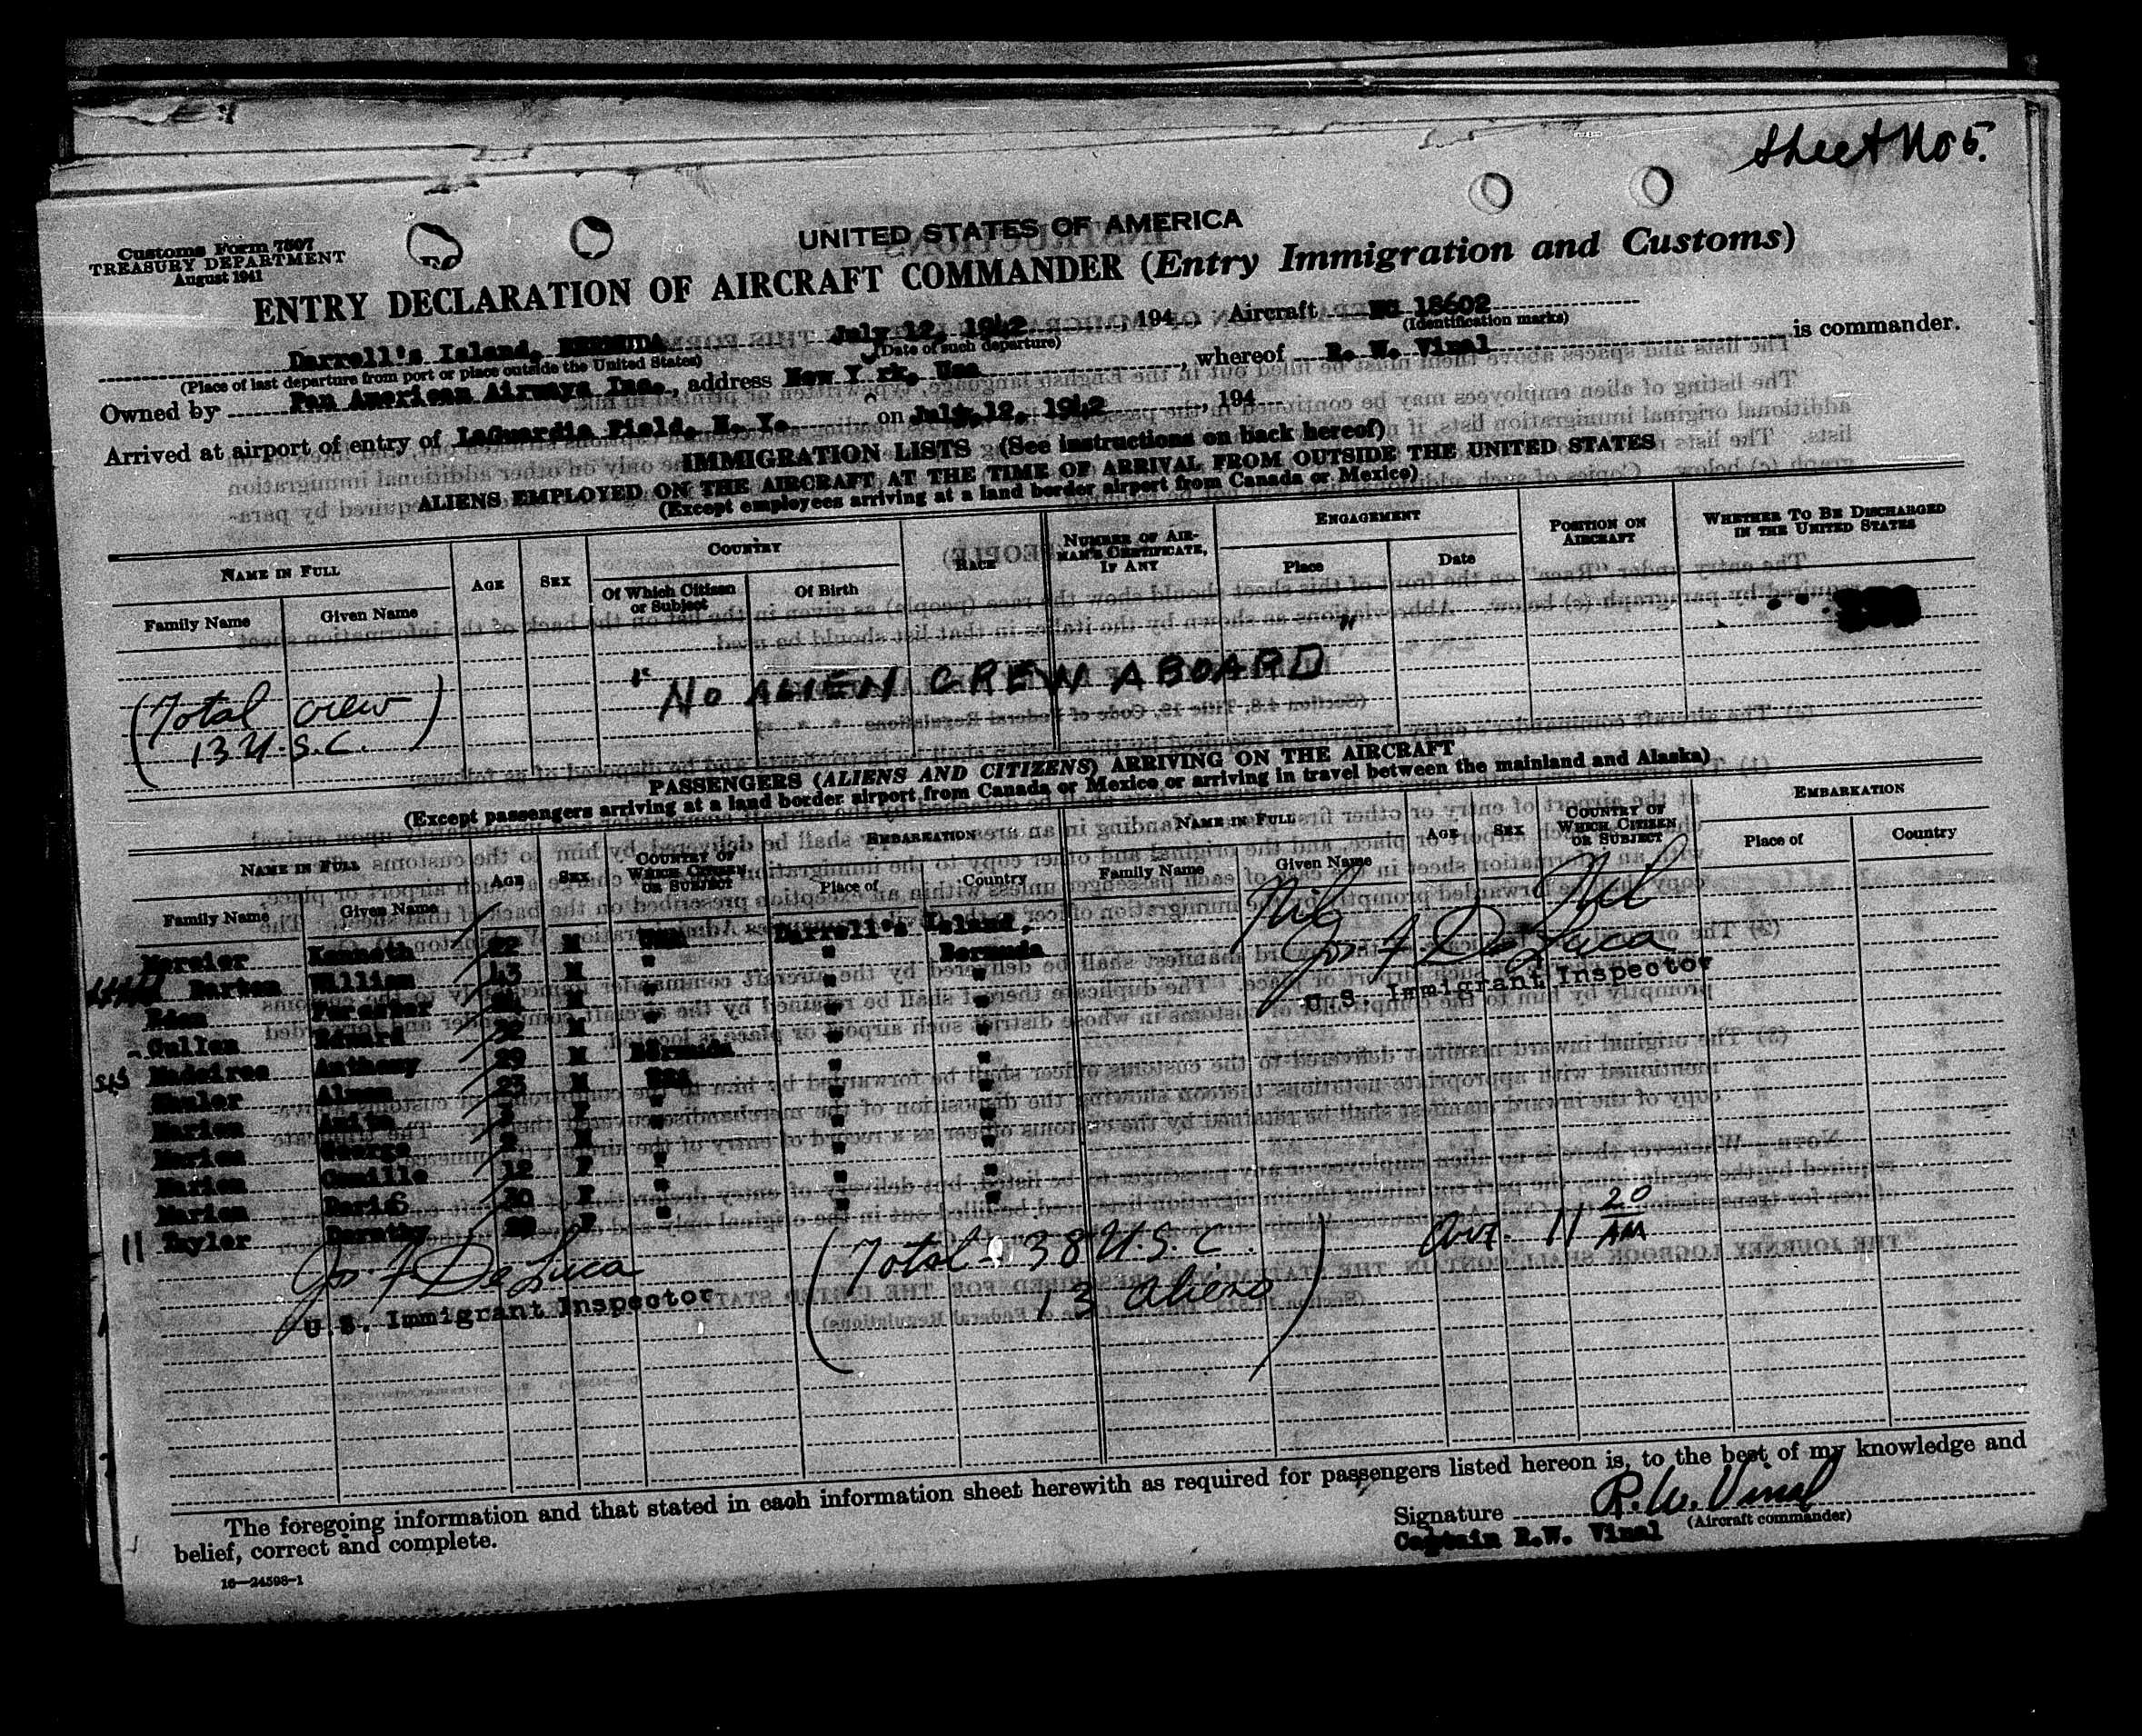 Sheet No 5.
Customs Form 7507
TREASURY DEPARTMENT
August 1941
UNITED STATES OF AMERICA
ENTRY DECLARATION OF AIRCRAFT COMMANDER (Entry Immigration and Customs)
Darrell's Island, BERMUDA July 12, 1942, 194 Aircraft NC 18602
(Place of last departure from port or place outside the United States) (Date of such departure) (Identification marks)
Owned by Pan American Airways Inc., address New Y rk, Usa, whereof R. W. Vinal is commander.
Arrived at airport of entry of LaGuardia Field, N. Y. on July 12, 1942, 194
IMMIGRATION LISTS (See instructions on back hereof)
ALIENS EMPLOYED ON THE AIRCRAFT AT THE TIME OF ARRIVAL FROM OUTSIDE THE UNITED STATES
(Except employees arriving at a land border airport from Canada or Mexico)
NAME IN FULL AGE SEX COUNTRY RACE NUMBER OF AIRMAN'S CERTIFICATE, IF ANY ENGAGEMENT POSITION ON AIRCRAFT WHETHER TO BE DISCHARGED IN THE UNITED STATES
Family Name Given Name Of Which Citizen or Subject Of Birth Place Date
" NO ALIEN CREW ABOARD "
(Total crew
13 U.S.C.)
PASSENGERS (ALIENS AND CITIZENS) ARRIVING ON THE AIRCRAFT
(Except passengers arriving at a land border airport from Canada or Mexico or arriving in travel between the mainland and Alaska)
NAME IN FULL AGE SEX COUNTRY OF WHICH CITIZEN OR SUBJECT EMBARKATION NAME IN FULL AGE SEX COUNTRY OF WHICH CITIZEN OR SUBJECT EMBARKATION
Family Name Given Name Place of Country Family Name Given Name Place of Country
Nil Nil
Mercier Kenneth 22 M USA Darrell's Island, Bermuda
Barton William 43 M " " "
Forester M " " "
Cullen Edward 32 M " " "
Anthony 29 M Bermuda " "
Alwen 23 M USA " "
Marion F " " "
Marion George M " " "
Marion Camille 12 F " " "
Marion Doris 30 F " " "
11 Taylor Dorothy F "
Jos F DeLuca
U.S. Immigrant Inspector
Jos F DeLuca
U.S. Immigrant Inspector
(Total - 38 U.S.C.
13 Aliens)
Arr. 11 20 AM
The foregoing information and that stated in each information sheet herewith as required for passengers listed hereon is, to the best of my knowledge and
belief, correct and complete.
Signature R.W. Vinal
(Aircraft commander)
Captain R.W. Vinal
16—24598-1